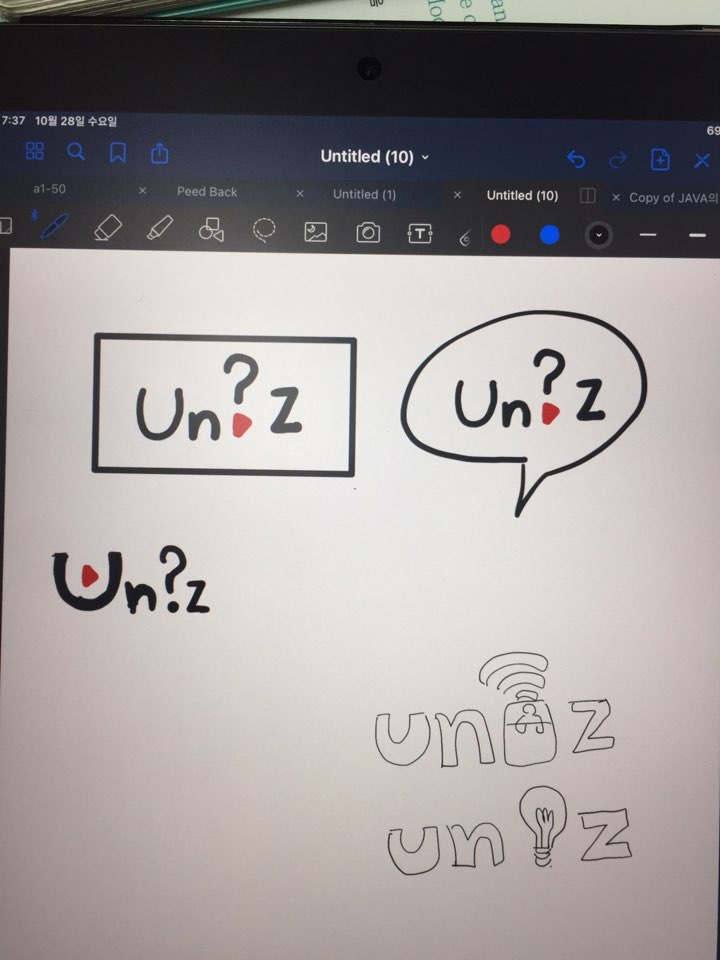 7:37 10월 28일 수요일
69
Untitled (10)
a1-50 Peed Back Untitled (1) Untitled (10) Copy of JAVA의
T
Un?z
Un?z
Un?z
unz
unz